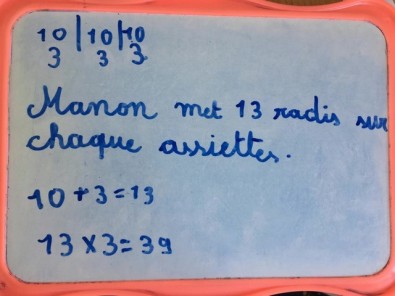 10 | 10 | 10
3 3 3
Manon met 13 radis sur
chaque assiettes.
10 + 3 = 13
13 x 3 = 39